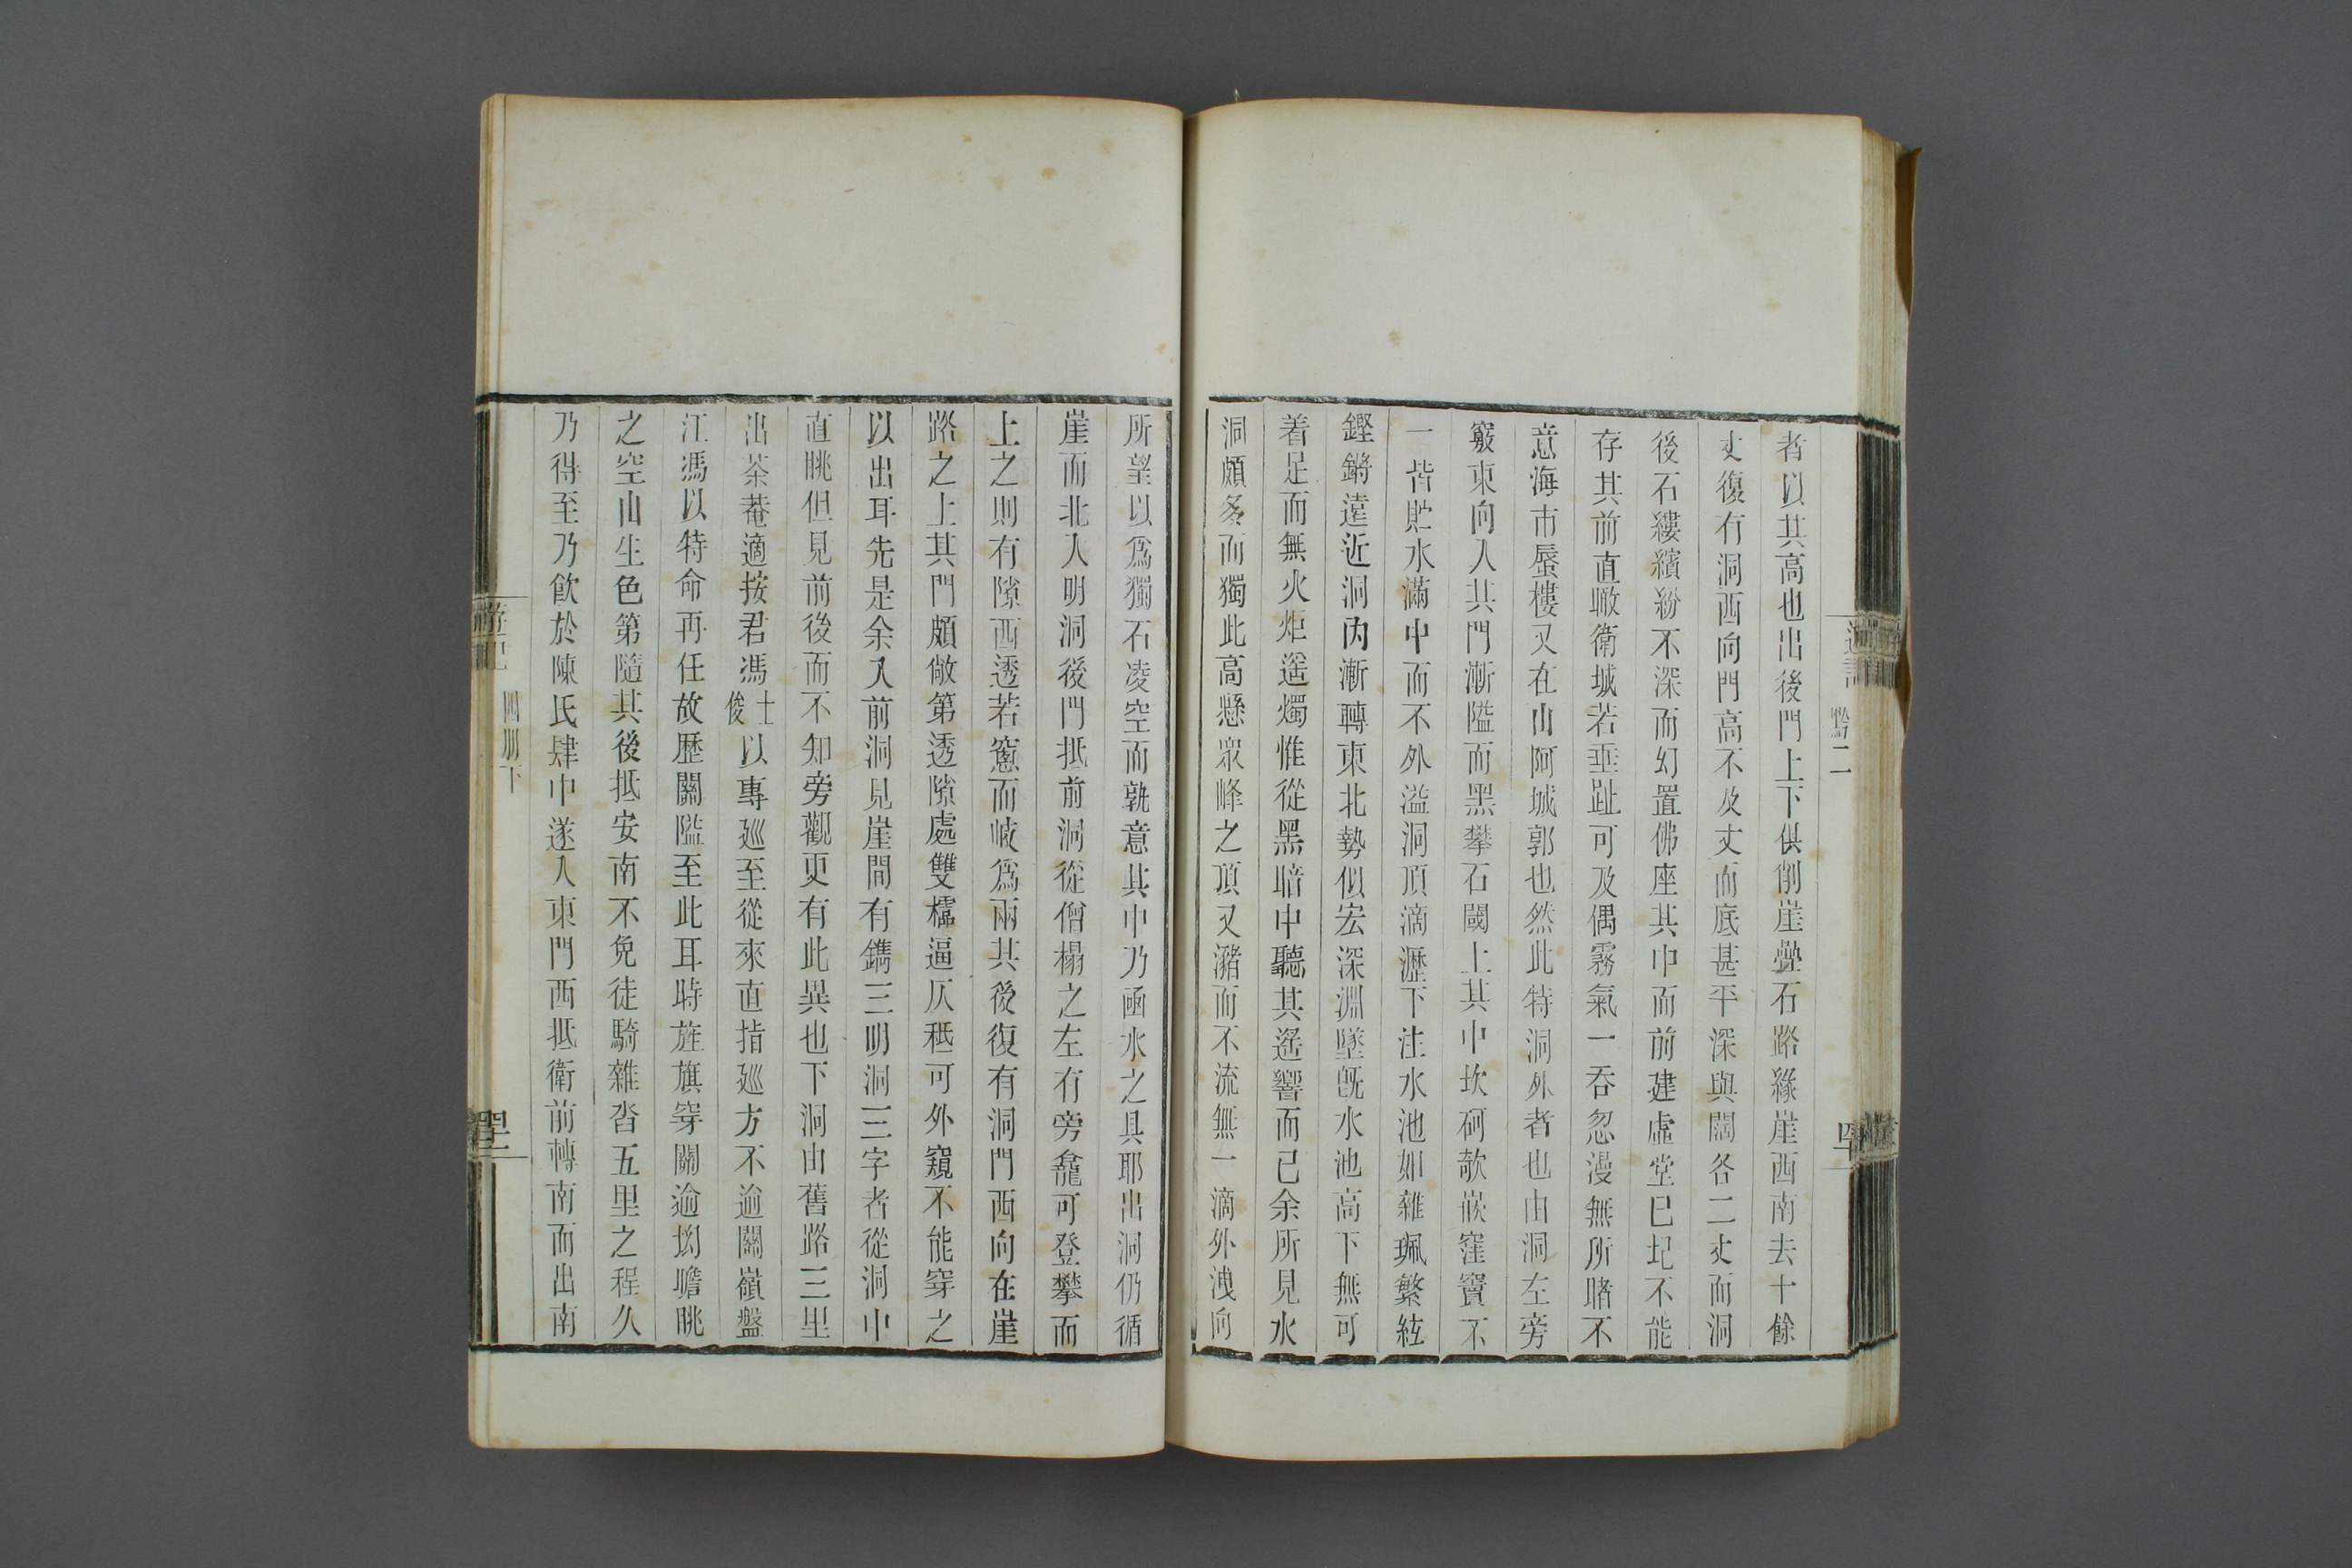 黔二
者以其高也出後門上下俱削崖疊石路緣崖西南去十餘
丈復有洞西向門高不及丈而底甚平深與闊各二丈而洞
後石縷繽紛不深而幻置佛座其中而前建虛堂已圮不能
存其前直瞰衛城若垂趾可及偶霧氣一吞忽漫無所睹不
意海市蜃樓又在山阿城郭也然此特洞外者也由洞左旁
竅東向入其門漸隘而黑攀石閾上其中坎砢欹嵌窪竇不
一皆貯水滿中而不外溢洞頂滴瀝下注水池如雜珮繁絃
鏗鏘遠近洞內漸轉東北勢似宏深淵墜旣水池高下無可
着足而無火炬遙燭惟從黑暗中聽其遙響而已余所見水
洞頗多而獨此高懸眾峰之頂又瀦而不流無一滴外洩向
所望以爲獨石凌空而孰意其中乃函水之具耶出洞仍循
崖而北入明洞後門抵前洞從僧榻之左有旁龕可登攀而
上之則有隙西透若窻而岐爲兩其後復有洞門西向在崖
路之上其門頗敞第透隙處雙櫺逼仄秪可外窺不能穿之
以出耳先是余入前洞見崖間有鐫三明洞三字者從洞中
直眺但見前後而不知旁觀更有此異也下洞由舊路三里
出茶菴適按君馮士俊以專廵至從來直指廵方不逾關嶺盤
江馮以特命再任故歷關隘至此耳時旌旗穿關逾坳瞻眺
之空山生色第隨其後抵安南不免徒騎雜沓五里之程久
乃得至乃飲於陳氏肆中遂入東門西抵衛前轉南而出南
遊記
四册下